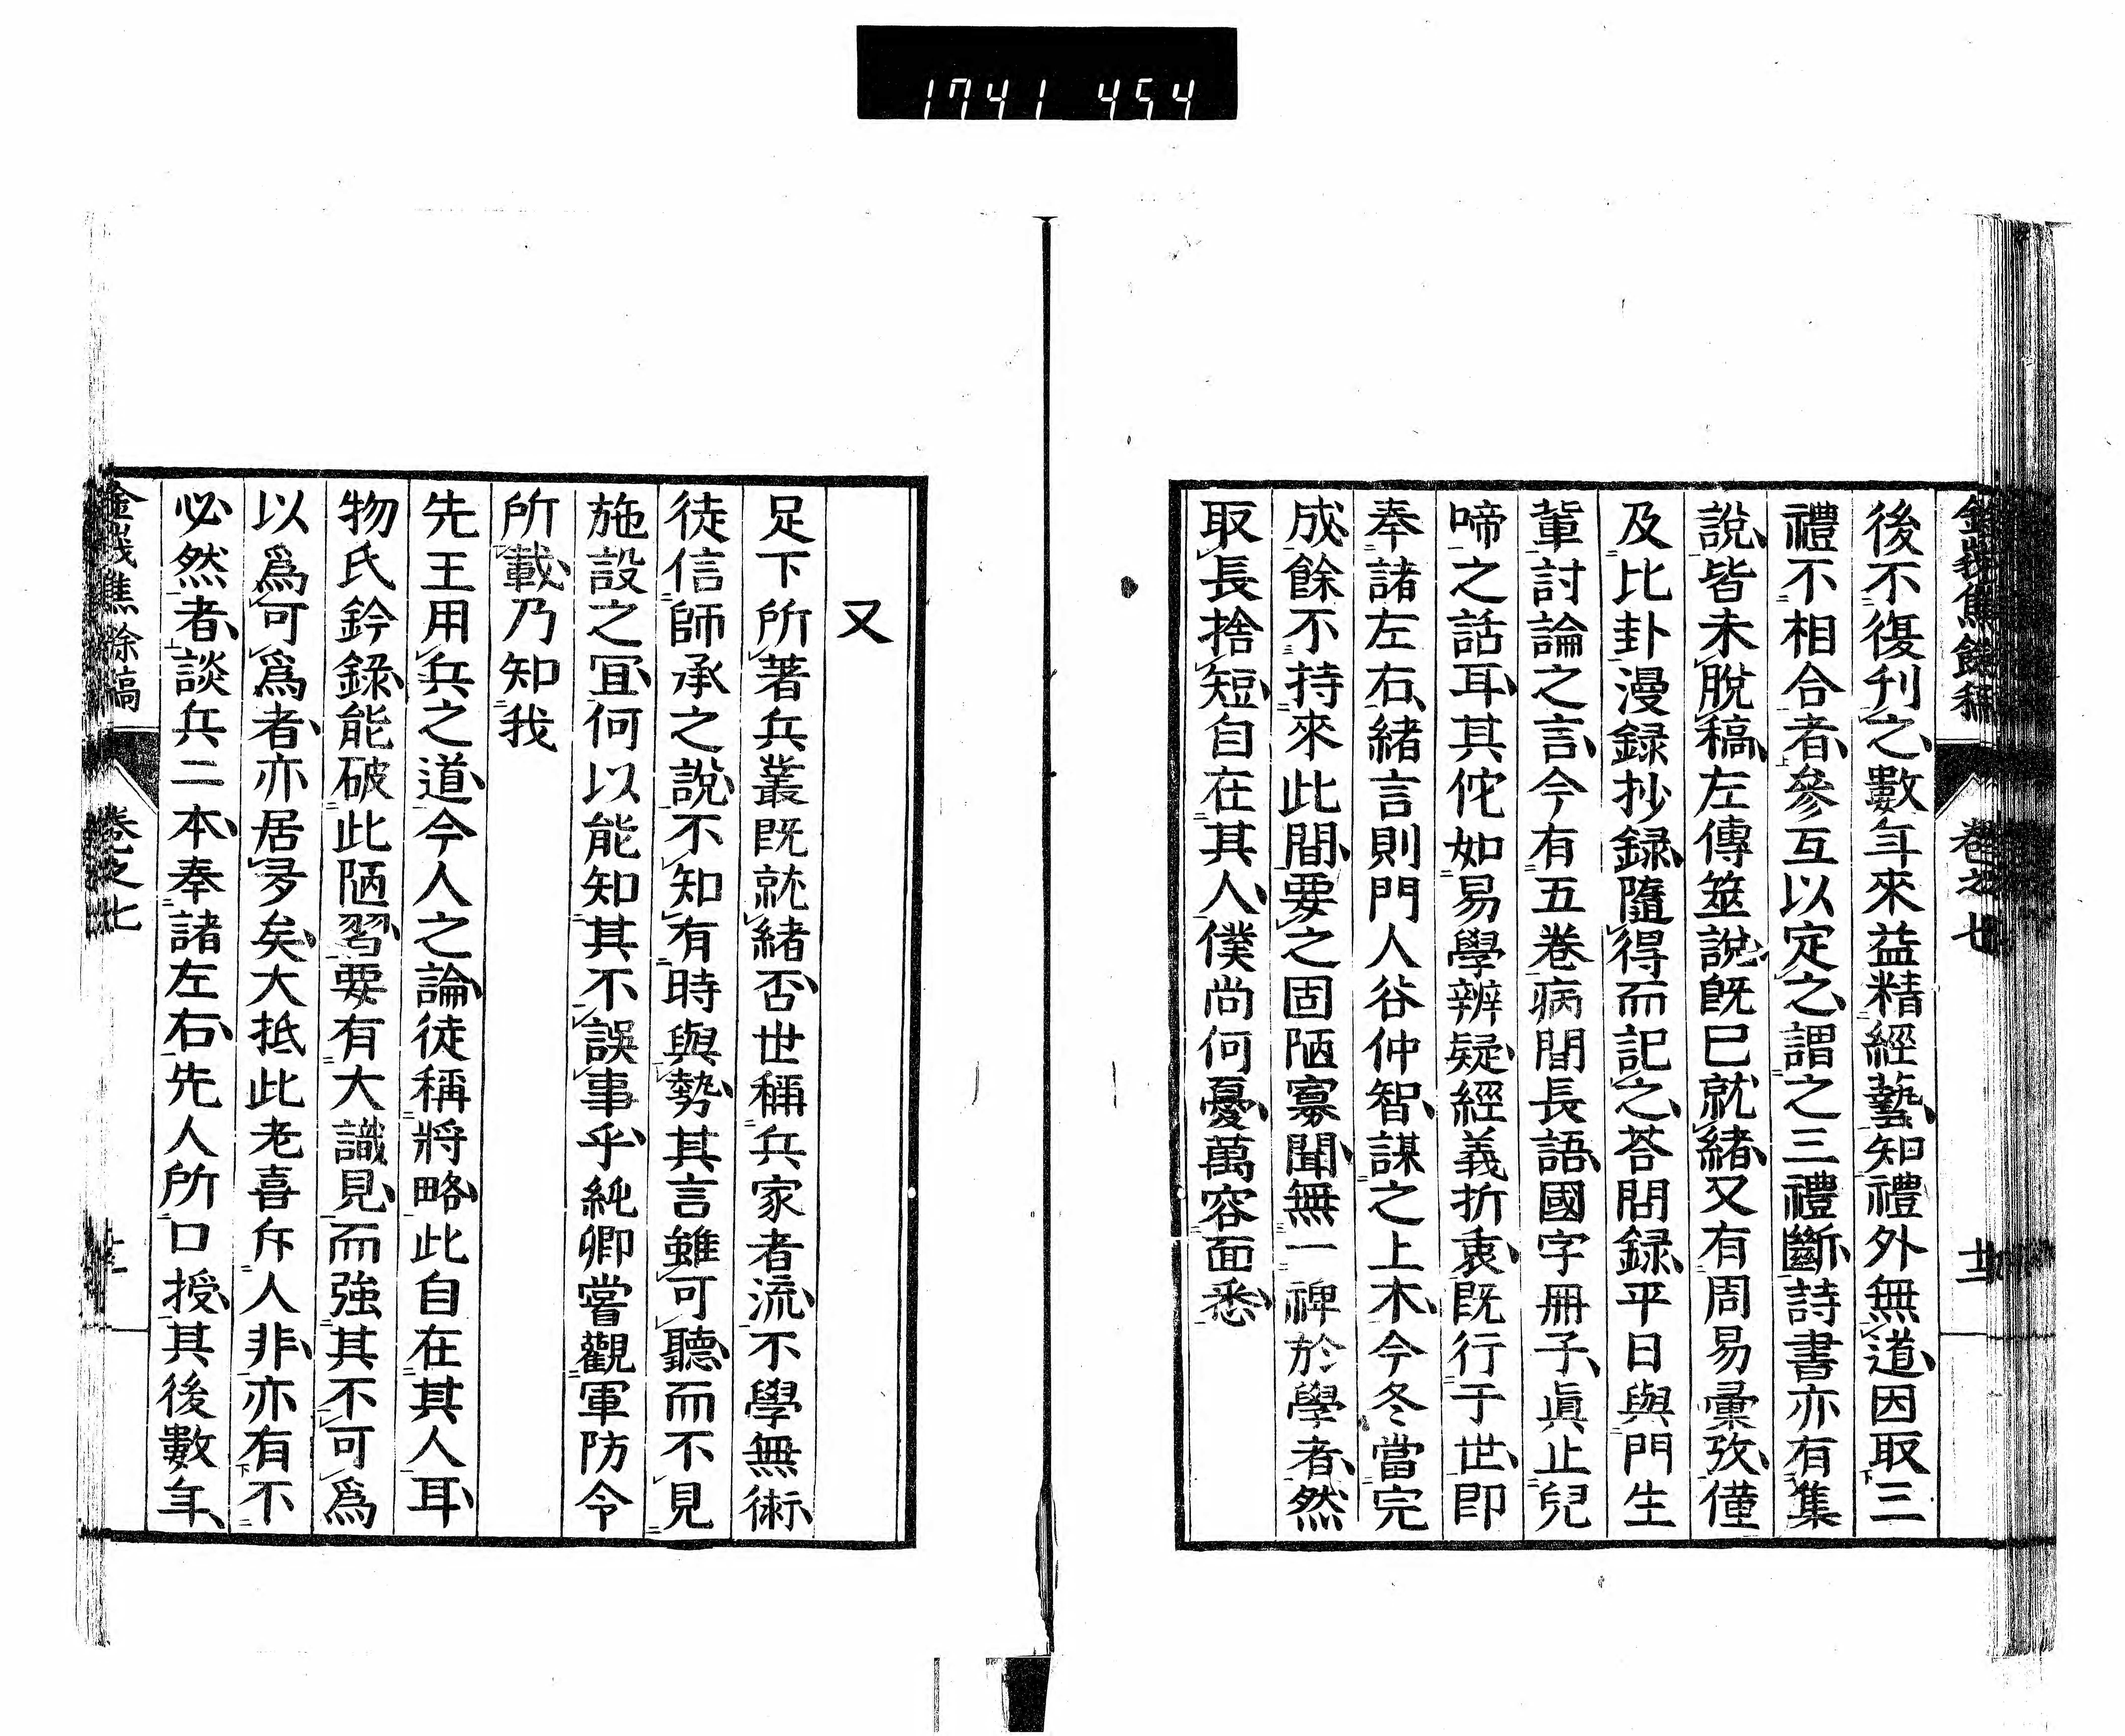 1741 454
金峩焦餘稿 卷之七 廿二
後不復刋之數年來益精經藝知禮外無道因取三
禮不相合者參互以定之謂之三禮斷詩書亦有集
說皆未脫稿左傳筮說旣已就緒又有周易彙攷僅
及比卦漫録抄録隨得而記之荅問録平日與門生
輩討論之言今有五卷病閒長語國字冊子眞止兒
啼之話耳其佗如易學辨疑經義折衷旣行于世即
奉諸左右緒言則門人谷仲智謀之上木今冬當完
成餘不持來此間要之固陋寡聞無一裨於學者然
取長捨短自在其人僕尚何憂萬容面悉
又
足下所著兵叢旣就緒否世稱兵家者流不學無術
徒信師承之說不知有時與勢其言雖可聽而不見
施設之宜何以能知其不誤事乎純卿嘗觀軍防令
所載乃知我
先王用兵之道今人之論徒稱將略此自在其人耳
物氏鈐錄能破此陋習要有大識見而強其不可爲
以爲可爲者亦居多矣大抵此老喜斥人非亦有不
必然者談兵二本奉諸左右先人所口授其後數年
金峩焦餘稿 卷之七